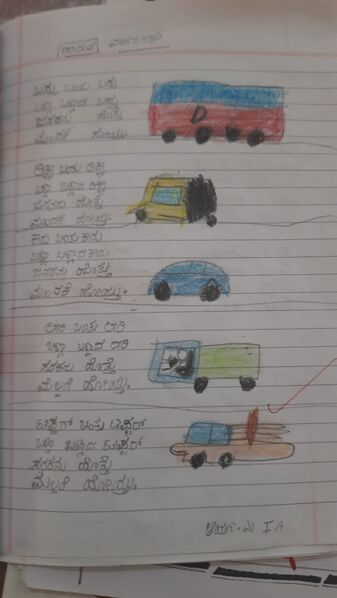 ವಾಹನಗಳು
ಬಸ್ಸು ಬಂತು ಬಸ್ಸು
ಬಣ್ಣ ಬಣ್ಣದ ಬಸ್ಸು
ಜನರನು ಹೊತ್ತು
ಮುಂದಕೆ ಹೋಯ್ತು
ರಿಕ್ಷಾ ಬಂತು ರಿಕ್ಷಾ
ಬಣ್ಣ ಬಣ್ಣದ ರಿಕ್ಷಾ
ಜನರನು ಹೊತ್ತು
ಮುಂದಕೆ ಹೋಯ್ತು
ಕಾರು ಬಂತು ಕಾರು
ಬಣ್ಣ ಬಣ್ಣದ ಕಾರು
ಜನರನು ಹೊತ್ತು
ಮುಂದಕೆ ಹೋಯ್ತು
ಲಾರಿ ಬಂತು ಲಾರಿ
ಬಣ್ಣ ಬಣ್ಣದ ಲಾರಿ
ಸರಕನು ಹೊತ್ತು
ಮೆಲ್ಲಗೆ ಹೋಯ್ತು
ಬಂತು
ಬಣ್ಣ ಬಣ್ಣದ
ಸರಕನು ಹೊತ್ತು
ಮೆಲ್ಲಗೆ ಹೋಯ್ತು
I A